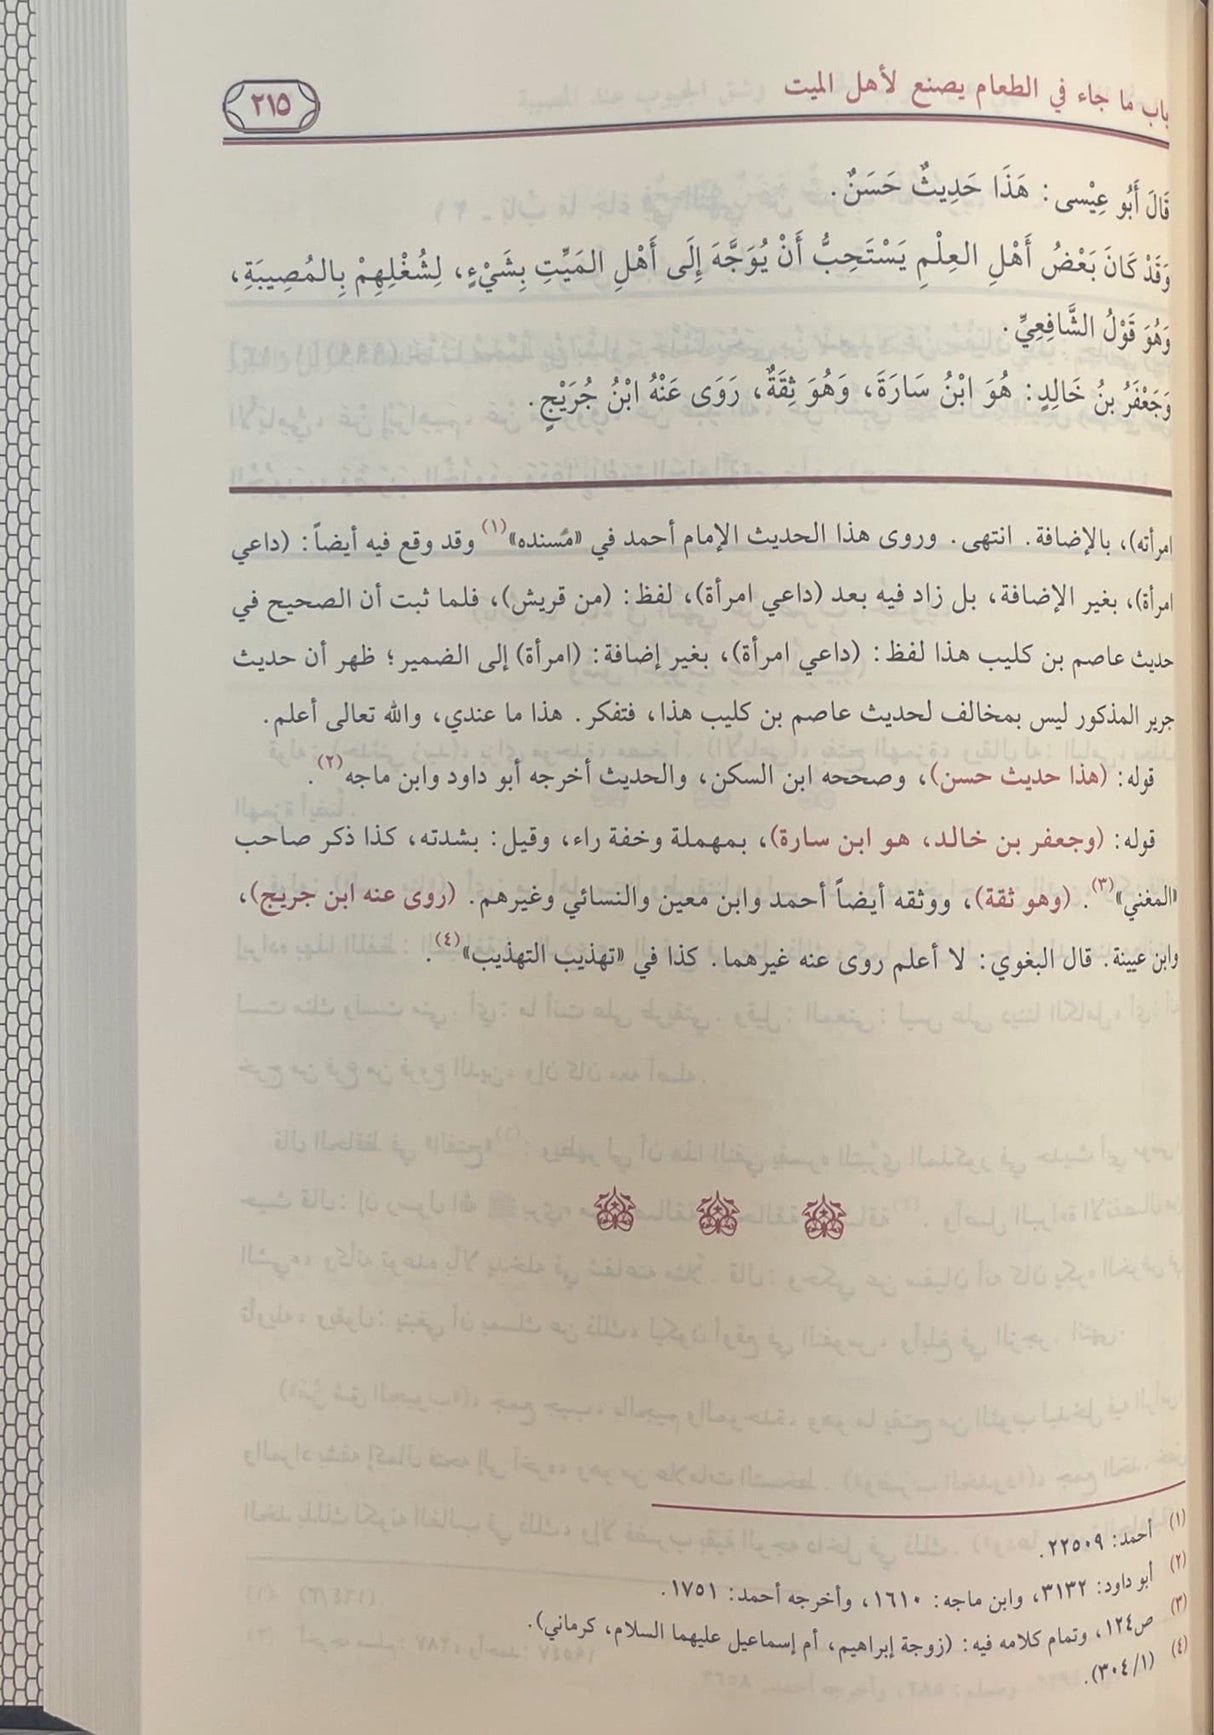 باب ما جاء في الطعام يصنع لأهل الميت
٢١٥
قَالَ أَبُو عِيْسى: هَذَا حَدِيثٌ حَسَنٌ.
وَقَدْ كَانَ بَعْضُ أَهْلِ العِلْمِ يَسْتَحِبُّ أَنْ يُوَجَّهَ إِلَى أَهْلِ المَيِّتِ بِشَيْءٍ، لِشُغْلِهِمْ بِالمُصِيبَةِ،
وَهُوَ قَوْلُ الشَّافِعِيِّ.
وَجَعْفَرُ بنُ خَالِدٍ: هُوَ ابْنُ سَارَةَ، وَهُوَ ثِقَةٌ، رَوَى عَنْهُ ابْنُ جُرَيْجٍ.
امرأته)، بالإضافة. انتهى. وروى هذا الحديث الإمام أحمد في «مُسنده»(١) وقد وقع فيه أيضاً: (داعي
امرأة)، بغير الإضافة، بل زاد فيه بعد (داعي امرأة)، لفظ: (من قريش)، فلما ثبت أن الصحيح في
حديث عاصم بن كليب هذا لفظ: (داعي امرأة)، بغير إضافة: (امرأة) إلى الضمير؛ ظهر أن حديث
جرير المذكور ليس بمخالف لحديث عاصم بن كليب هذا، فتفكر. هذا ما عندي، والله تعالى أعلم.
قوله: (هذا حديث حسن)، وصححه ابن السكن، والحديث أخرجه أبو داود وابن ماجه(٢).
قوله: (وجعفر بن خالد، هو ابن سارة)، بمهملة وخفة راء، وقيل: بشدته، كذا ذكر صاحب
«المغني»(٣). (وهو ثقة)، ووثقه أيضاً أحمد وابن معين والنسائي وغيرهم. (روى عنه ابن جريج)،
وابن عيينة. قال البغوي: لا أعلم روى عنه غيرهما. كذا في «تهذيب التهذيب»(٤).
(١) أحمد: ٢٢٥٠٩.
(٢) أبو داود: ٣١٣٢، وابن ماجه: ١٦١٠، وأخرجه أحمد: ١٧٥١.
(٣) ص١٢٤، وتمام كلامه فيه: (زوجة إبراهيم، أم إسماعيل عليهما السلام، كرماني).
(٤) (٣٠٤/١).